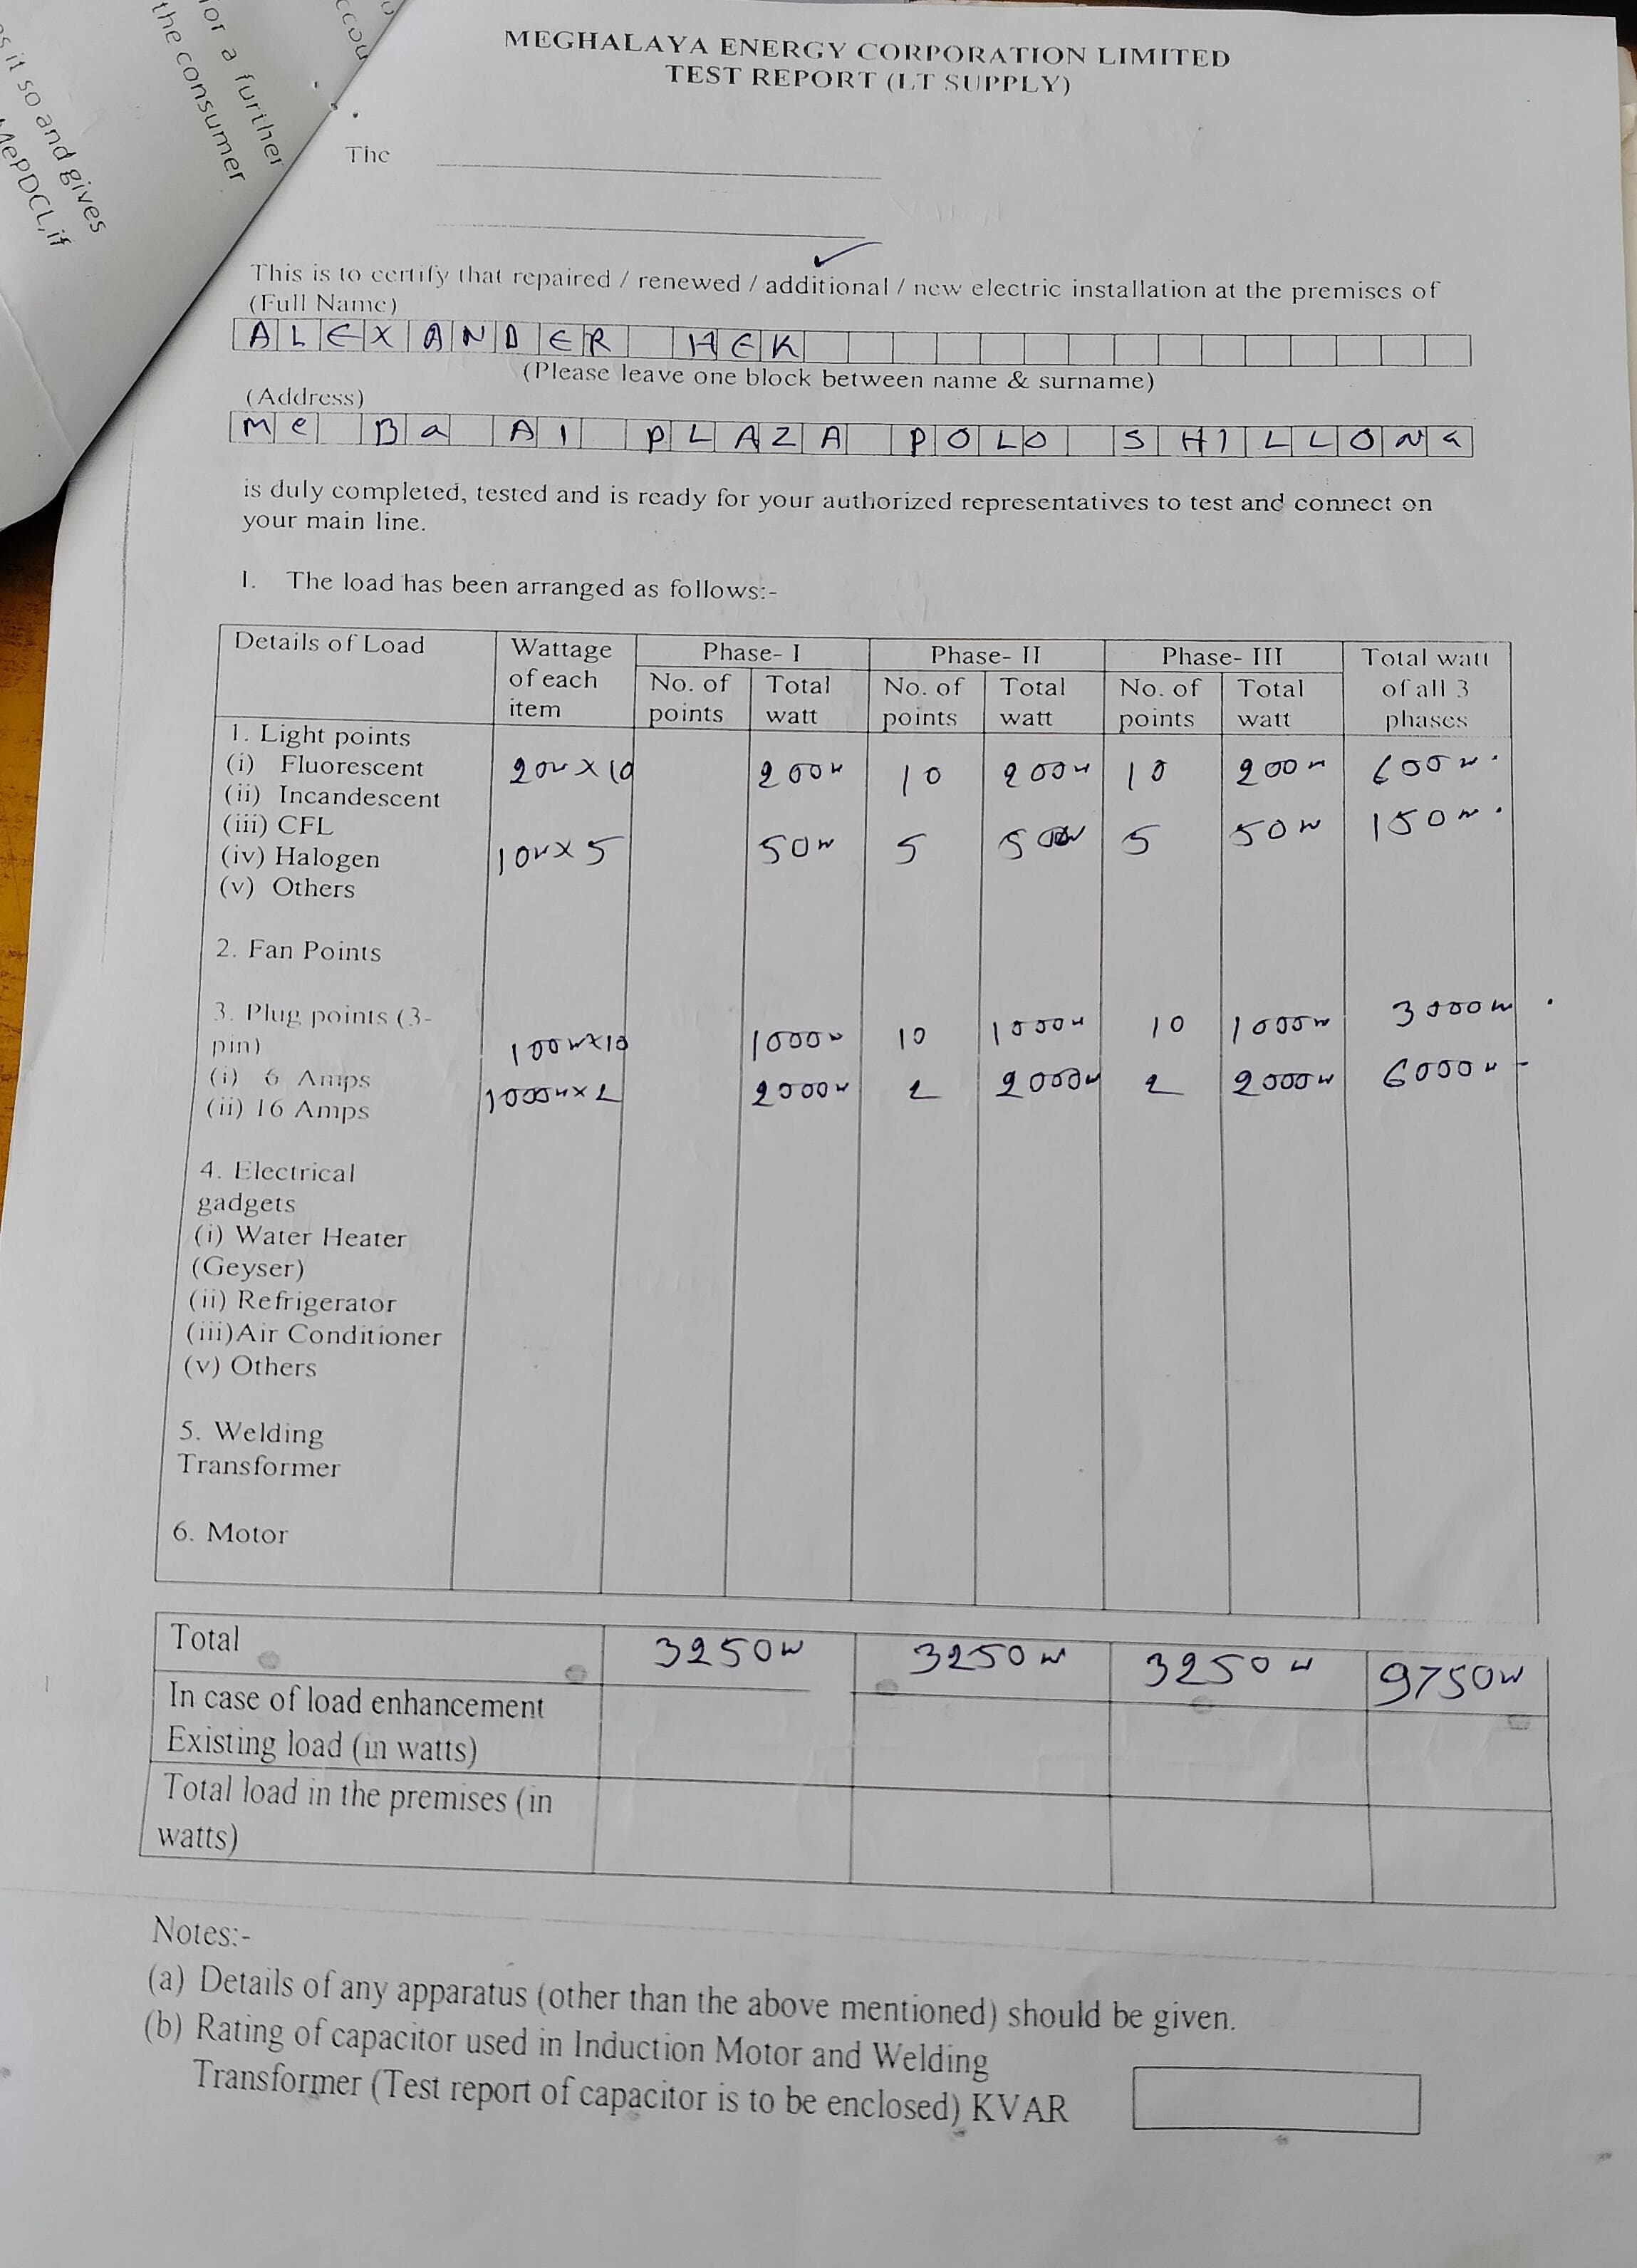 or a further
the consumer
s it so and gives
MePDCL, if
ccou
MEGHALAYA ENERGY CORPORATION LIMITED
TEST REPORT (LT SUPPLY)
The
This is to certify that repaired / renewed / additional / new electric installation at the premises of
(Full Name)
ALEXANDER HEK
(Please leave one block between name & surname)
(Address)
Me Ba AI PLAZA POLO SHILLONG
is duly completed, tested and is ready for your authorized representatives to test and connect on
your main line.
I. The load has been arranged as follows:-
Details of Load Wattage of each item Phase- I Phase- II Phase- III Total watt of all 3 phases
No. of points Total watt No. of points Total watt No. of points Total watt
1. Light points
(i) Fluorescent 20w X 10 200w 10 200w 10 200w 600w.
(ii) Incandescent
(iii) CFL
(iv) Halogen 10w X 5 50w 5 50w 5 50w 150w.
(v) Others
2. Fan Points
3. Plug points (3-
pin)
(i) 6 Amps 100w X 10 1000w 10 1000w 10 1000w 3000w.
(ii) 16 Amps 1000w X 2 2000w 2 2000w 2 2000w 6000w -
4. Electrical
gadgets
(i) Water Heater
(Geyser)
(ii) Refrigerator
(iii)Air Conditioner
(v) Others
5. Welding
Transformer
6. Motor
Total 3250w 3250w 3250w 9750w
In case of load enhancement
Existing load (in watts)
Total load in the premises (in
watts)
Notes:-
(a) Details of any apparatus (other than the above mentioned) should be given.
(b) Rating of capacitor used in Induction Motor and Welding
Transformer (Test report of capacitor is to be enclosed) KVAR